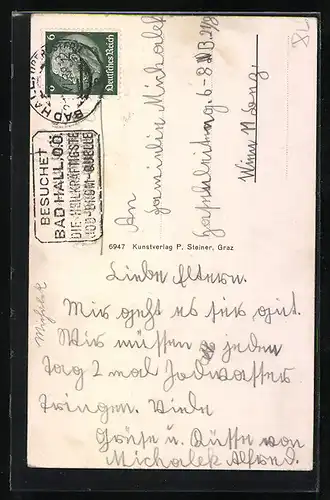 6
Deutsches Reich
BAD HALL
BESUCHET
BAD HALL, O.Ö.
DIE HEILKRÄFTIGSTE
JOD-BROM-QUELLE
An
Familie Michalek
6-8
Wien
6947 Kunstverlag P. Steiner, Graz
Michalek
Liebe Eltern.
Mir geht es ser gut.
Wir müssen jeden
tag 2 mal Jodwasser
tringen. Viele
Grüse u. Küsse von
Michalek Alfred.